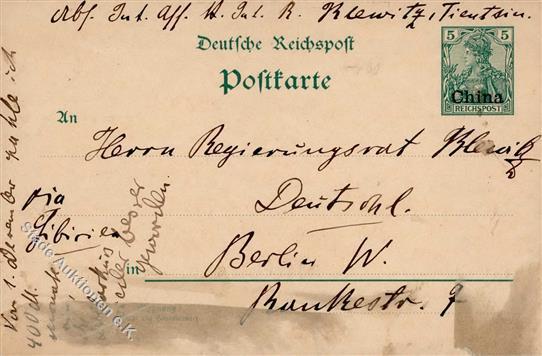 Abs. Int. Aff. H. Int. R. Klewitz, Tientsin.
Deutsche Reichspost
Postkarte
5 5
China
REICHSPOST
An
Herrn Regierungsrat Klewitz
Deutschl.
in Berlin W.
Rankestr. 7
via
Sibirien
Vor 1. Dezember zahle ich
400 M.
oder besser
Stade Auktionen e.K.